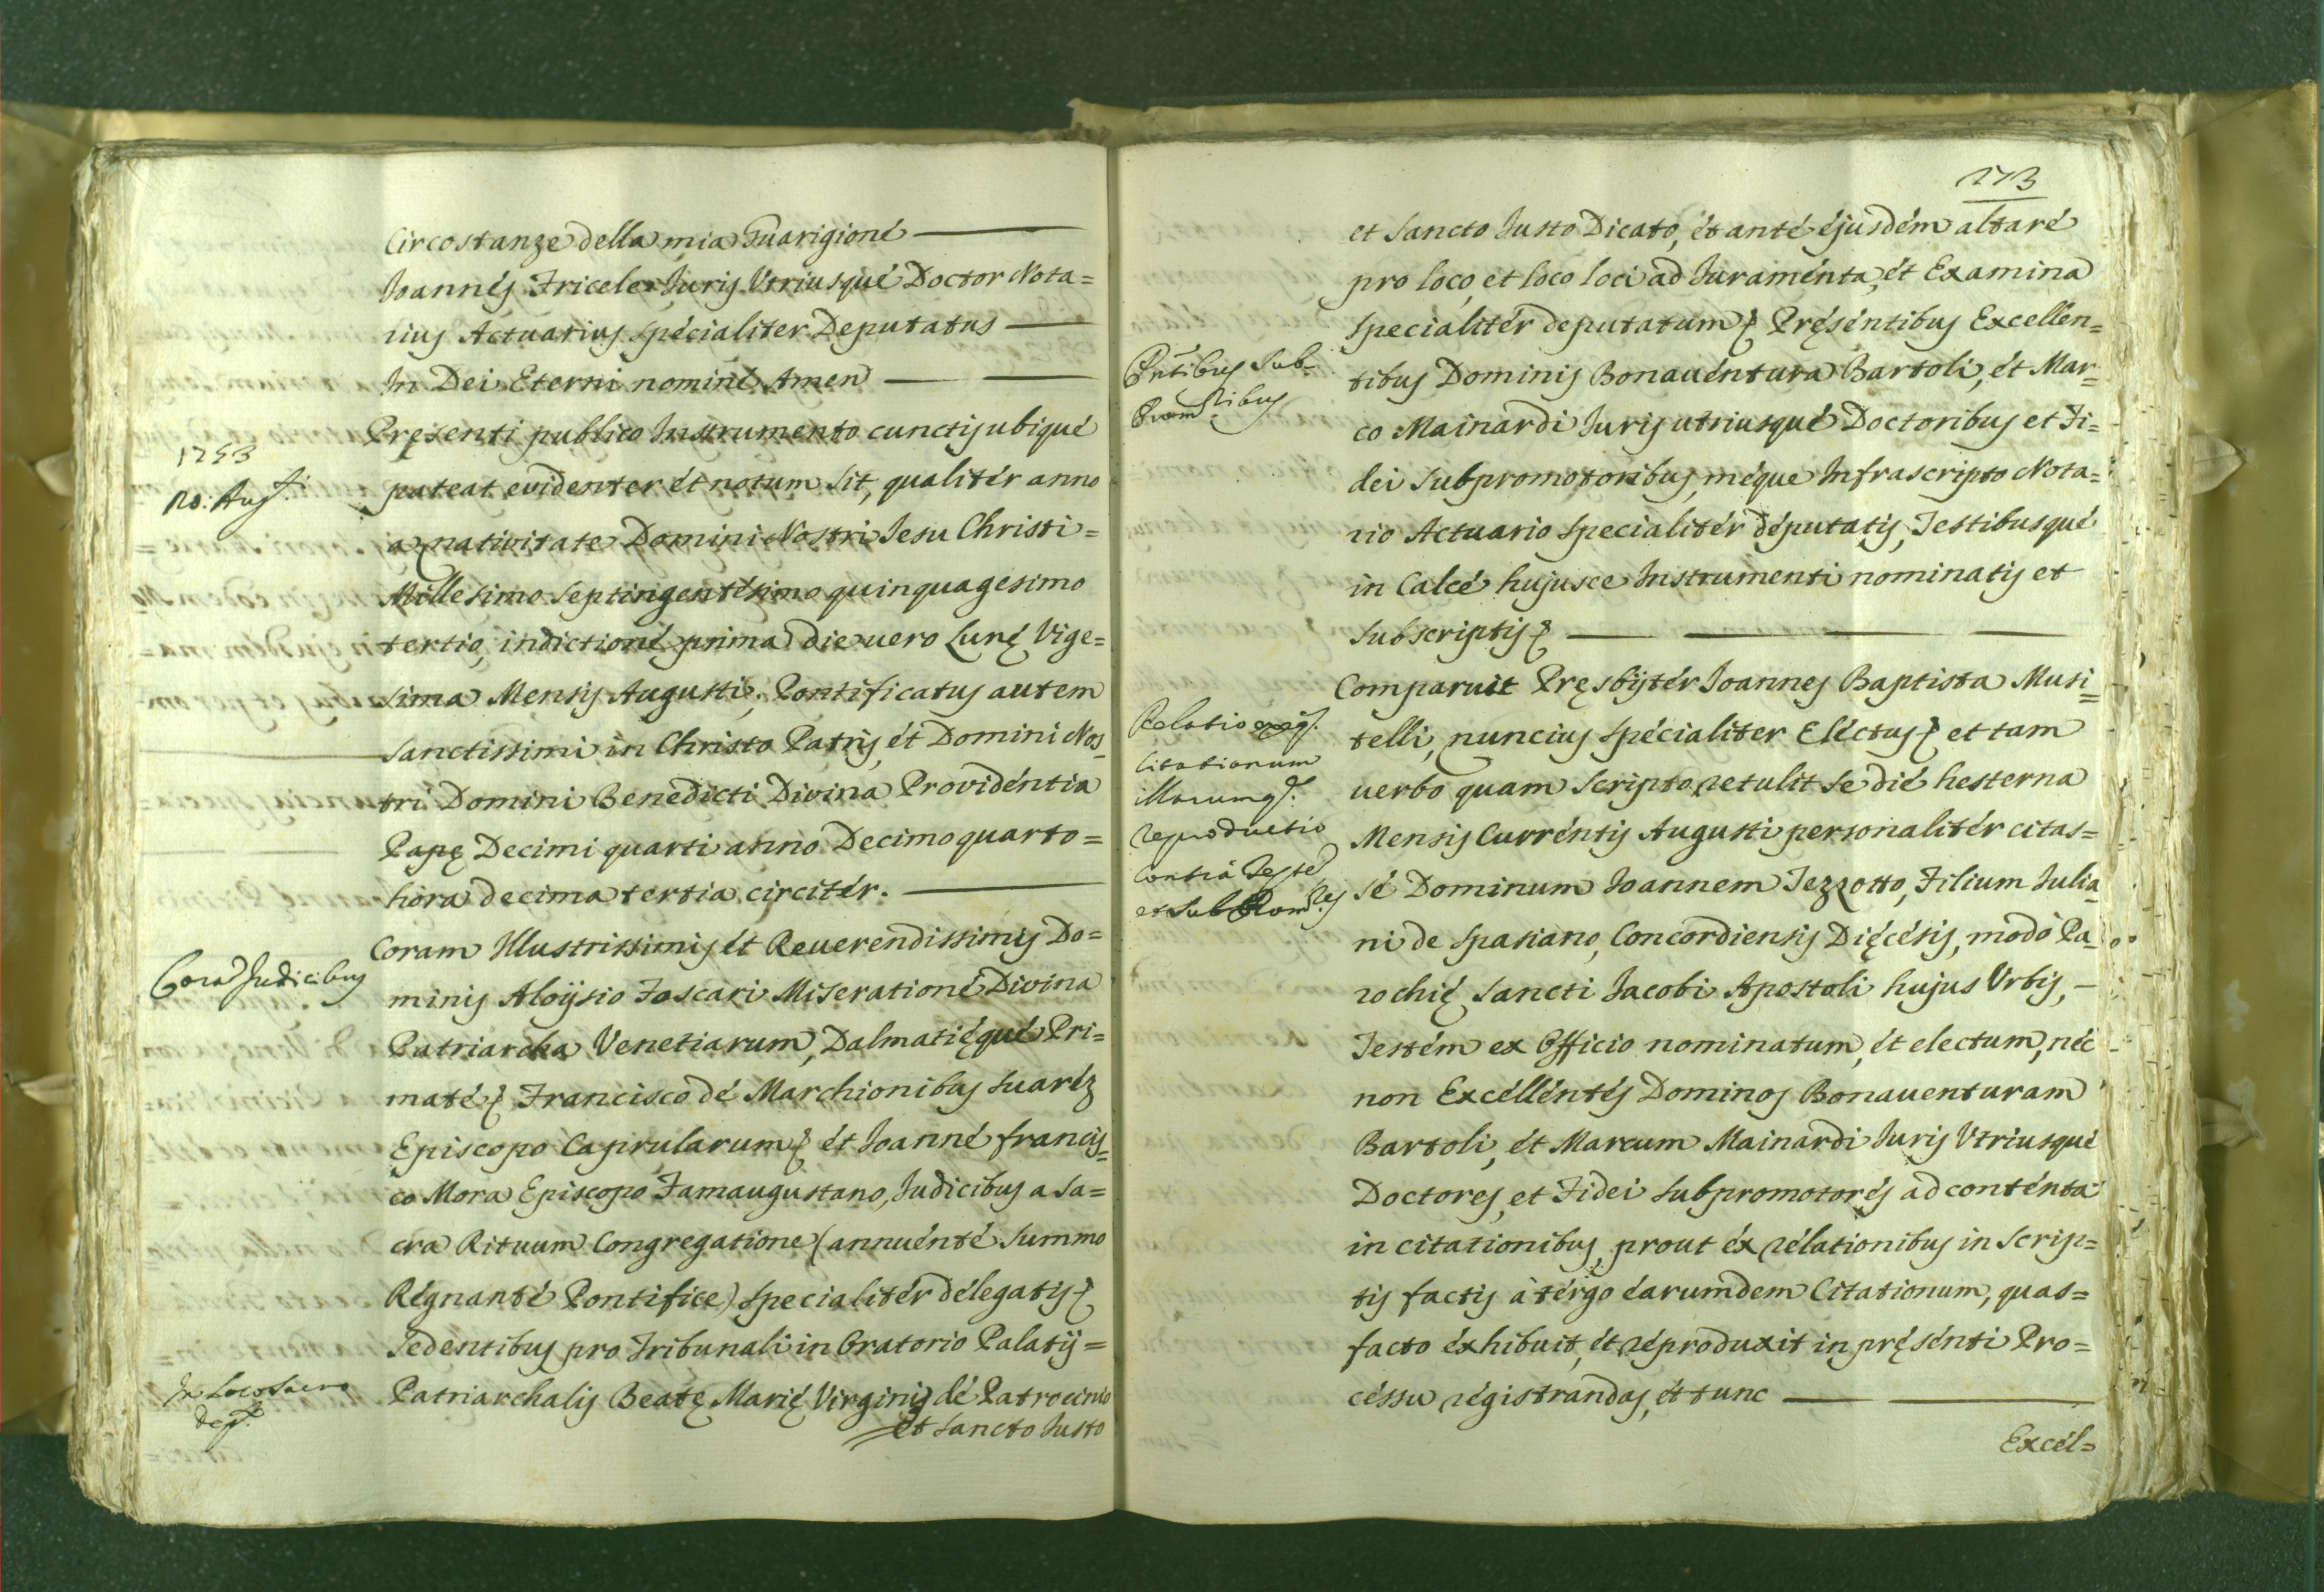 Circostanze della mia Guarigione
Joannes Friceler Juris Utriusque Doctor Nota=
rius Actuarius specialiter Deputatus
In Dei Eterni nomine Amen
Pręsenti publico Instrumento cunctis ubique
1753
20. Aug.ti
pateat evidenter et notum sit, qualiter anno
a nativitate Domini Nostri Jesu Christi=
Millesimo Septingentesimo quinquagesimo
tertio, indictione prima die vero Lunę Vige=
sima Mensis Augusti, Pontificatus autem
Sanctissimi in Christo Patris, et Domini Nos=
tri Domini Benedicti Divina Providentia
Papę Decimi quarti anno Decimo quarto=
hora decima tertia circiter.
Coram Judicibus
Coram Illustrissimis et Reverendissimis Do=
minis Aloysio Foscari Miseratione Divina
Patriarcha Venetiarum, Dalmatięque Pri=
mate, Francisco de Marchionibus Suarez
Episcopo Caprularum, et Joanne Francis=
co Mora Episcopo Famaugustano, Judicibus a Sa=
cra Rituum Congregatione (annuente Summo
Regnante Pontifice) specialiter delegatis
Sedentibus pro Tribunali in Oratorio Palatij=
In Loco Sacro
dep.
Patriarchalis Beatę Marię Virginis de Patrocinio
et Sancto Justo
273
et Sancto Justo Dicato, et ante ejusdem altare
pro loco, et loco loci ad Juramenta, et Examina
specialiter deputatum Pręsentibus Excellen=
Pntibus Sub-
Promribus
tibus Dominis Bonaventura Bartoli, et Mar=
co Mainardi Juris utriusque Doctoribus et Fi=
dei Subpromotoribus, meque Infrascripto Nota=
rio Actuario specialiter deputatis, Testibusque
in Calce hujusce Instrumenti nominatis et
subscriptis
Comparuit Pręsbyter Joannes Baptista Musi=
telli, nuncius specialiter Electus et tam
verbo quam scripto retulit se die hesterna
Mensis Currentis Augusti personaliter citas=
se Dominum Joannem Tezzotto, Filium Julia=
ni de Spasiano, Concordiensis Dięcesis, modo Pa=
rochię Sancti Jacobi Apostoli hujus Urbis, -
Relatio
Citationum
illarumq.
reproductio
contra Teste
et SubPromres
Testem ex Officio nominatum, et electum, nec
non Excellentes Dominos Bonaventuram
Bartoli, et Marcum Mainardi Juris Utriusque
Doctores, et Fidei Subpromotores ad contenta
in citationibus, prout ex relationibus in scrip=
tis factis à tergo earumdem Citationum, quas=
facto exhibuit, et reproduxit in pręsenti Pro=
cessu registrandas, et tunc
Excel=